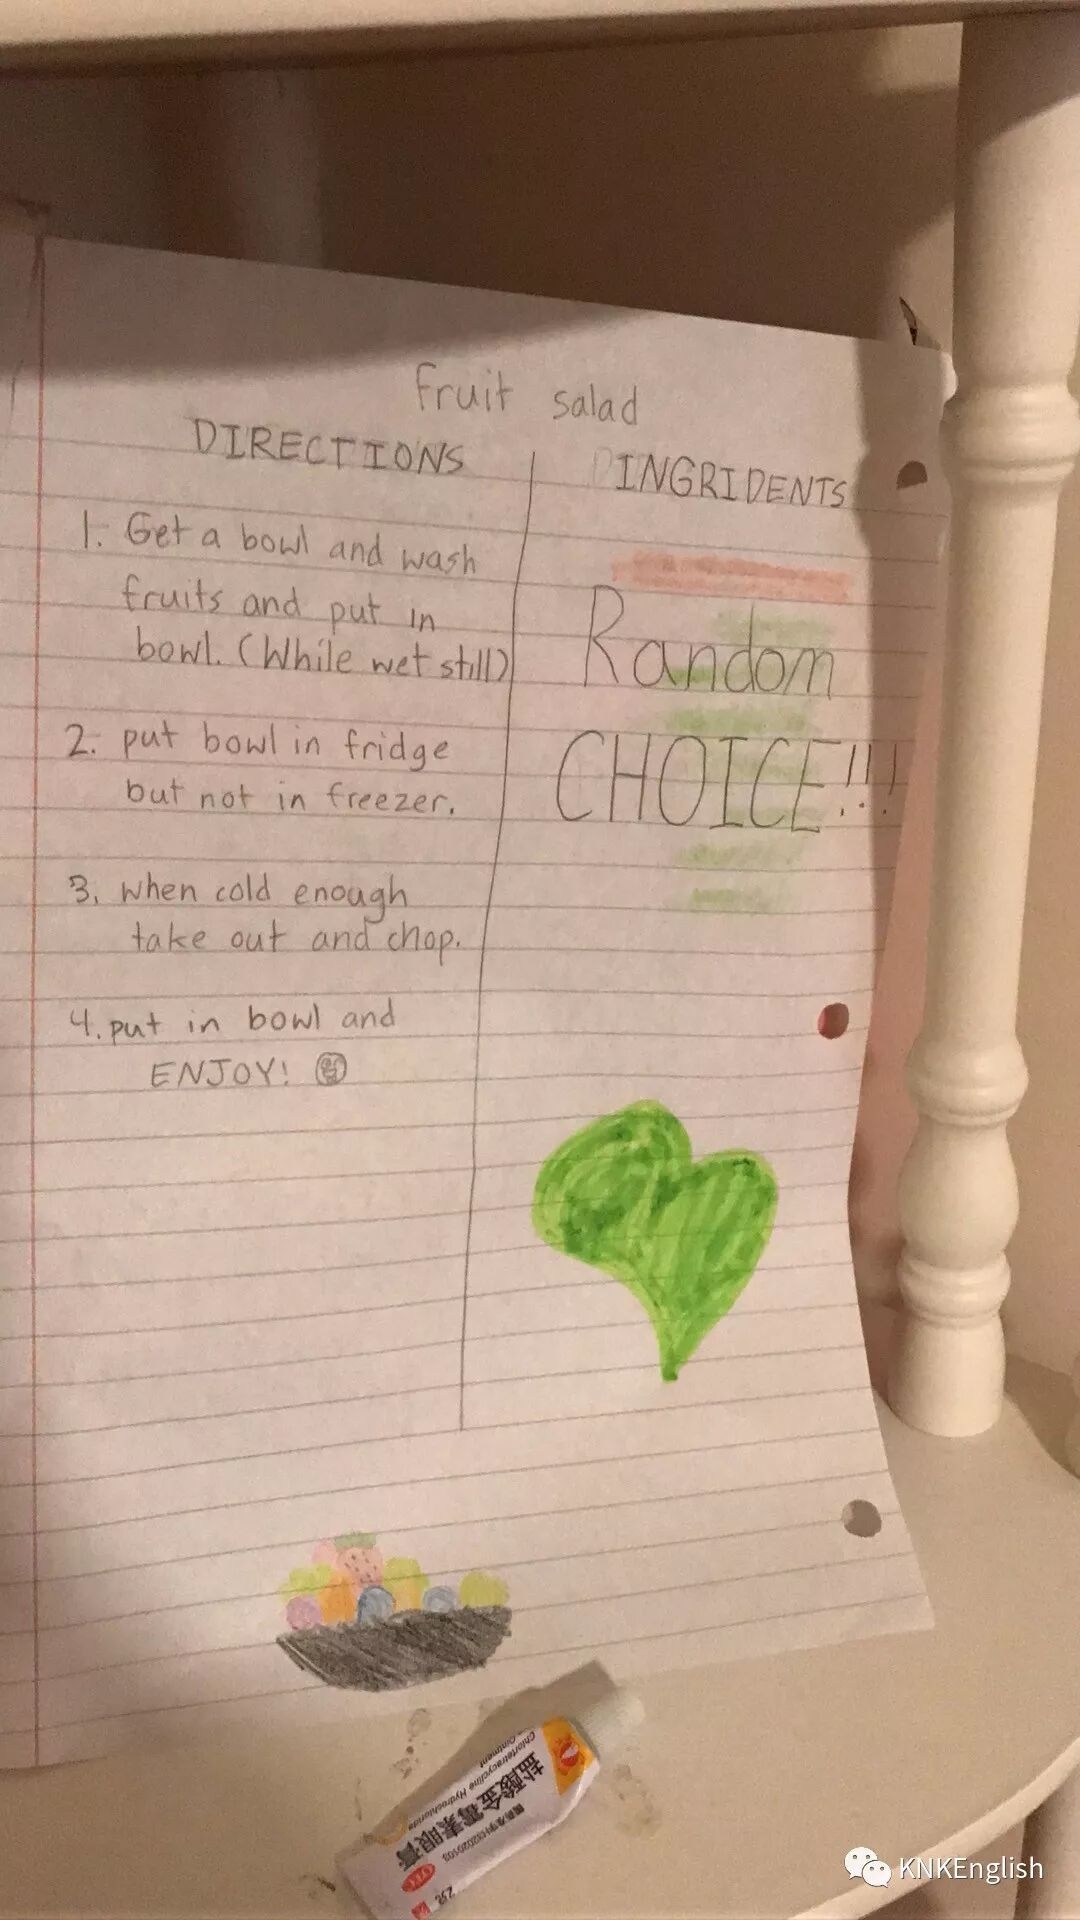 fruit salad
DIRECTIONS
1. Get a bowl and wash
fruits and put in
bowl. (While wet still)
2. put bowl in fridge
but not in freezer.
3. when cold enough
take out and chop.
4. put in bowl and
ENJOY!
INGRIDENTS
Random
CHOICE!!!
盐酸金霉素眼膏
Chlortetracycline Hydrochloride
Ointment
OTC
KNKEnglish